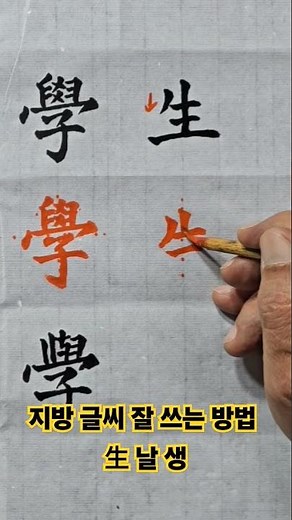 學 生
學 生
學
지방 글씨 잘 쓰는 방법
生 날 생